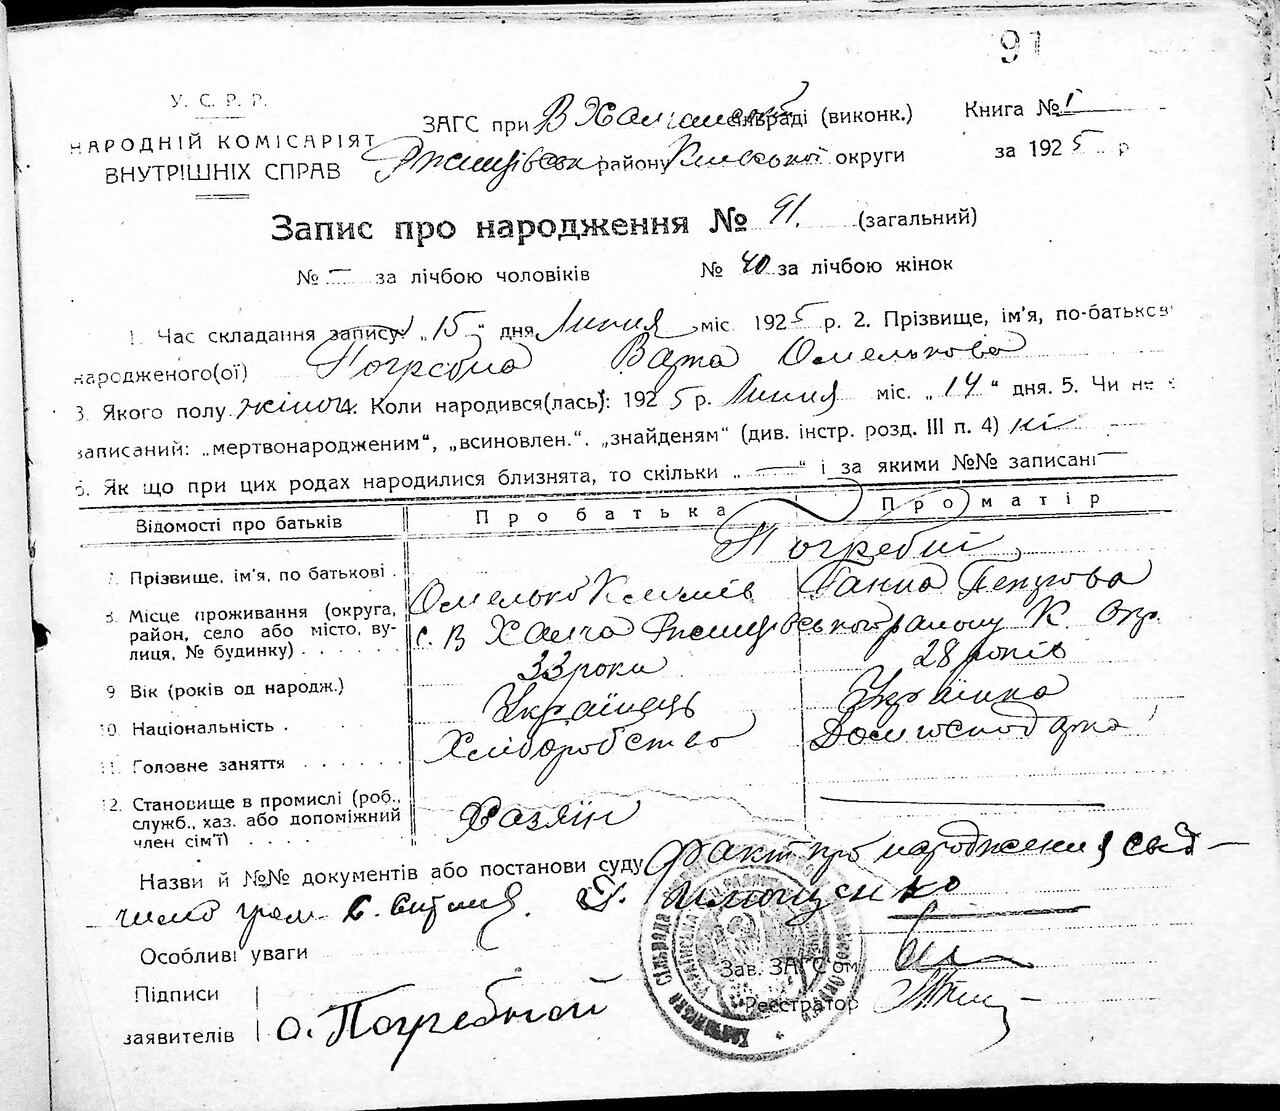 91
У. С. Р. Р.
НАРОДНІЙ КОМІСАРІЯТ
ВНУТРІШНІХ СПРАВ
ЗАГС при В Халчанській сільраді (виконк.)
Ржищівськ району Київської округи
Книга № 1
за 1925 р
Запис про народження № 91. (загальний)
№ — за лічбою чоловіків № 40 за лічбою жінок
1. Час складання запису: „15“ дня Липня міс 1925 р. 2. Прізвище, ім'я, по-батькові
народженого(ої) Погребна Омелькова
3. Якого полу жіноч 4. Коли народився(лась): 1925 р. Липня міс. „14“ дня. 5. Чи не є
записаний: „мертвонародженим“, „всиновлен.“. „знайденям“ (див. інстр. розд. III п. 4) ні
6. Як що при цих родах народилися близнята, то скільки „—“ і за якими №№ записані —
Відомості про батьків Про батька Про матір
Погребні
7. Прізвище, ім'я, по батькові . Омелько Климів Ганна Петрова
8. Місце проживання (округа, район, село або місто, вулиця, № будинку) . . . . . с. В Халча Ржищівського району К. Окр.
9 Вік (років од народж.) 33 роки 28 років
10. Національність . Українець Українка
11. Головне заняття . . . . . . Хліборобство Домгосподарка
12. Становище в промислі (роб., служб., хаз. або допоміжний член сім'ї) . . . . Хазяїн
Назви й №№ документів або постанови суду Факт про народження свід-
чимо гром.
Особливі уваги
Зав. ЗАГС'ом
Підписи
заявителів
О. Погребной
Реєстратор